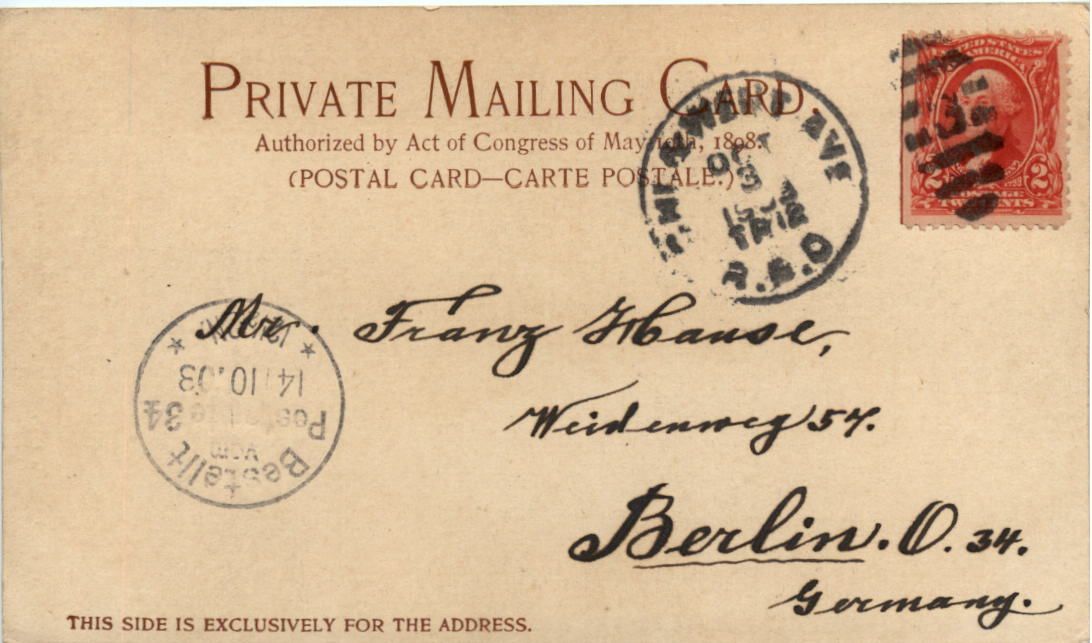 PRIVATE MAILING CARD.
Authorized by Act of Congress of May 19th, 1898.
(POSTAL CARD—CARTE POSTALE.)
UNITED STATES
OF AMERICA
2 2
POSTAGE
TWO CENTS
AVE
OCT
3
R.P.O
Mr. Franz Hause,
Weidenweg 57.
Berlin. O. 34.
Germany.
Bestellt
vom
Postamte 34
14/10.03
THIS SIDE IS EXCLUSIVELY FOR THE ADDRESS.